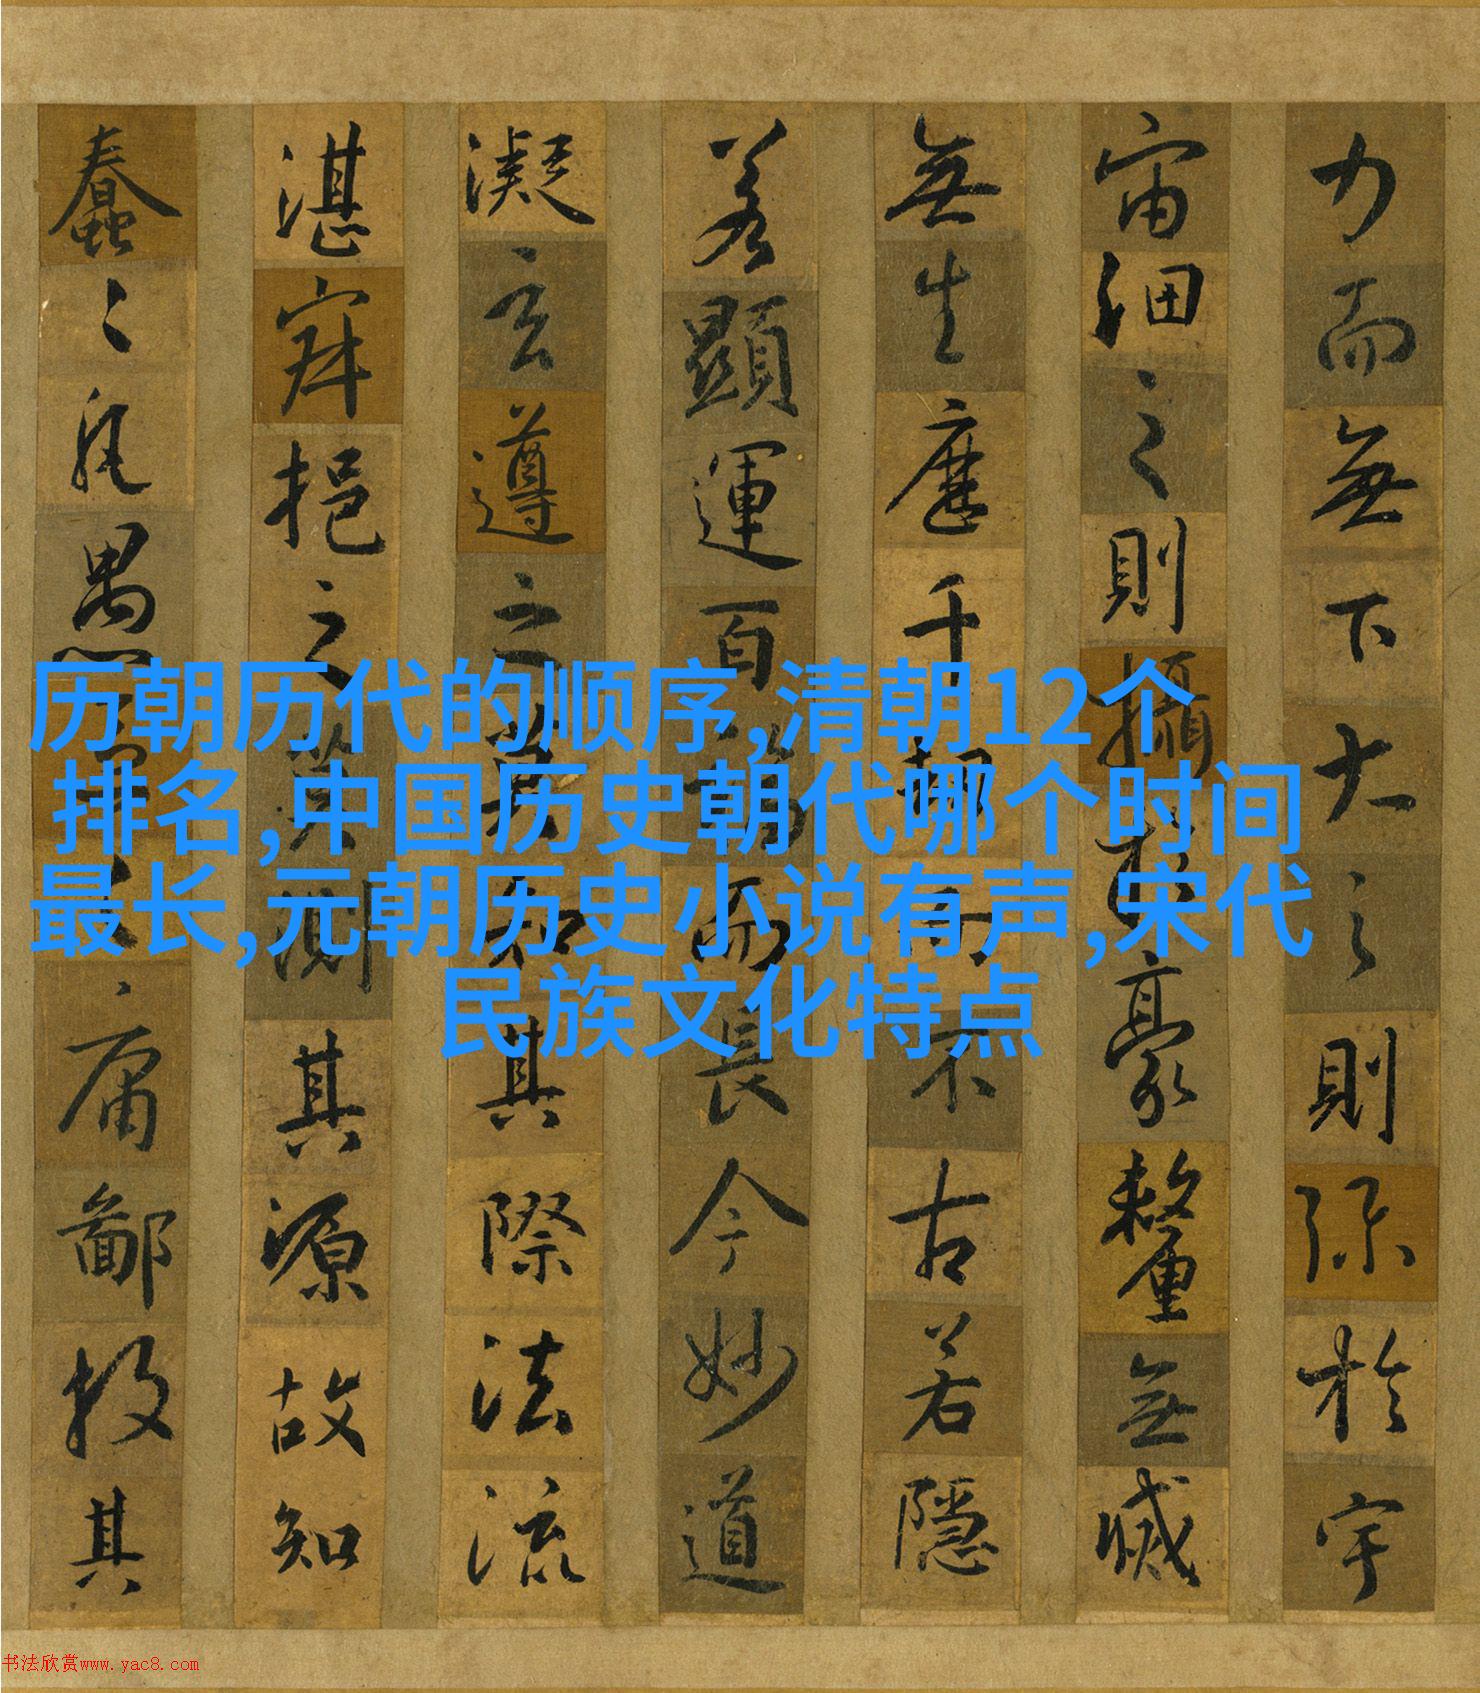 历朝历代的顺序,清朝12个
排名,中国历史朝代哪个时间
最长,元朝历史小说有声,宋代
民族文化特点
力而無下大之則弥於宇
宙細之則攝於豪釐無滅
無生歷千劫而不古若隱
若顯運百福而長今妙道
凝玄遵之莫知其際法流
湛寂挹之莫測其源故知
蠢〻凡愚區〻庸鄙投其
书法欣赏www.yac8.com